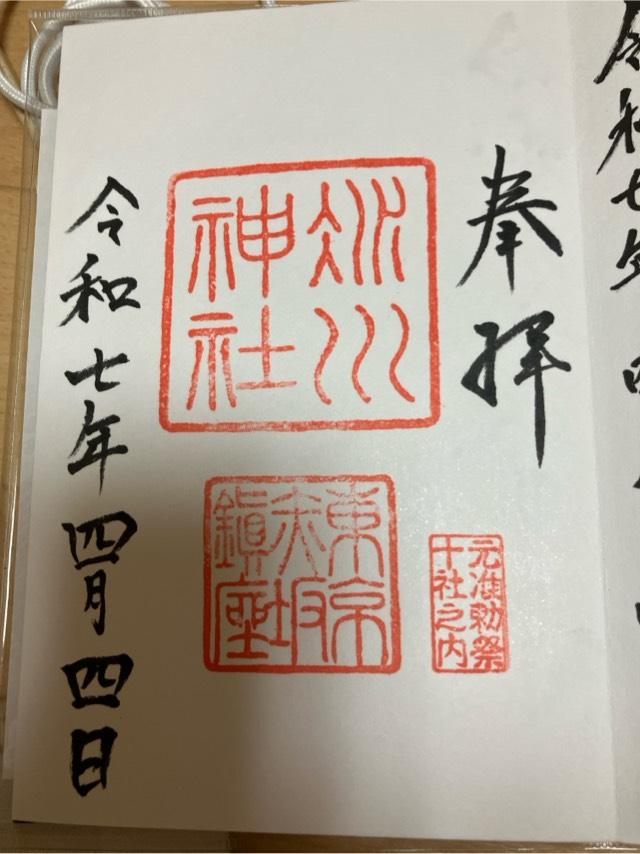 令和七年
奉拝
氷川
神社
元准勅祭
十社之内
東京
赤坂
鎭座
令和七年四月四日